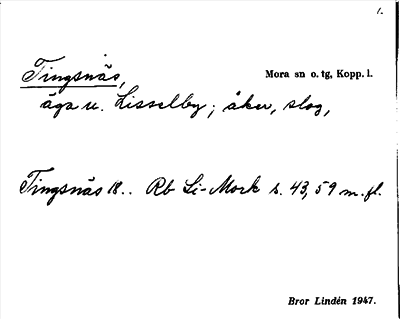 1.
Tingsnäs,
Mora sn o. tg, Kopp. l.
äga u. Lisselby; åker, slog,
Tingsnäs 18.. Rb Li-Mork s. 43, 59 m. fl.
Bror Lindén 1947.